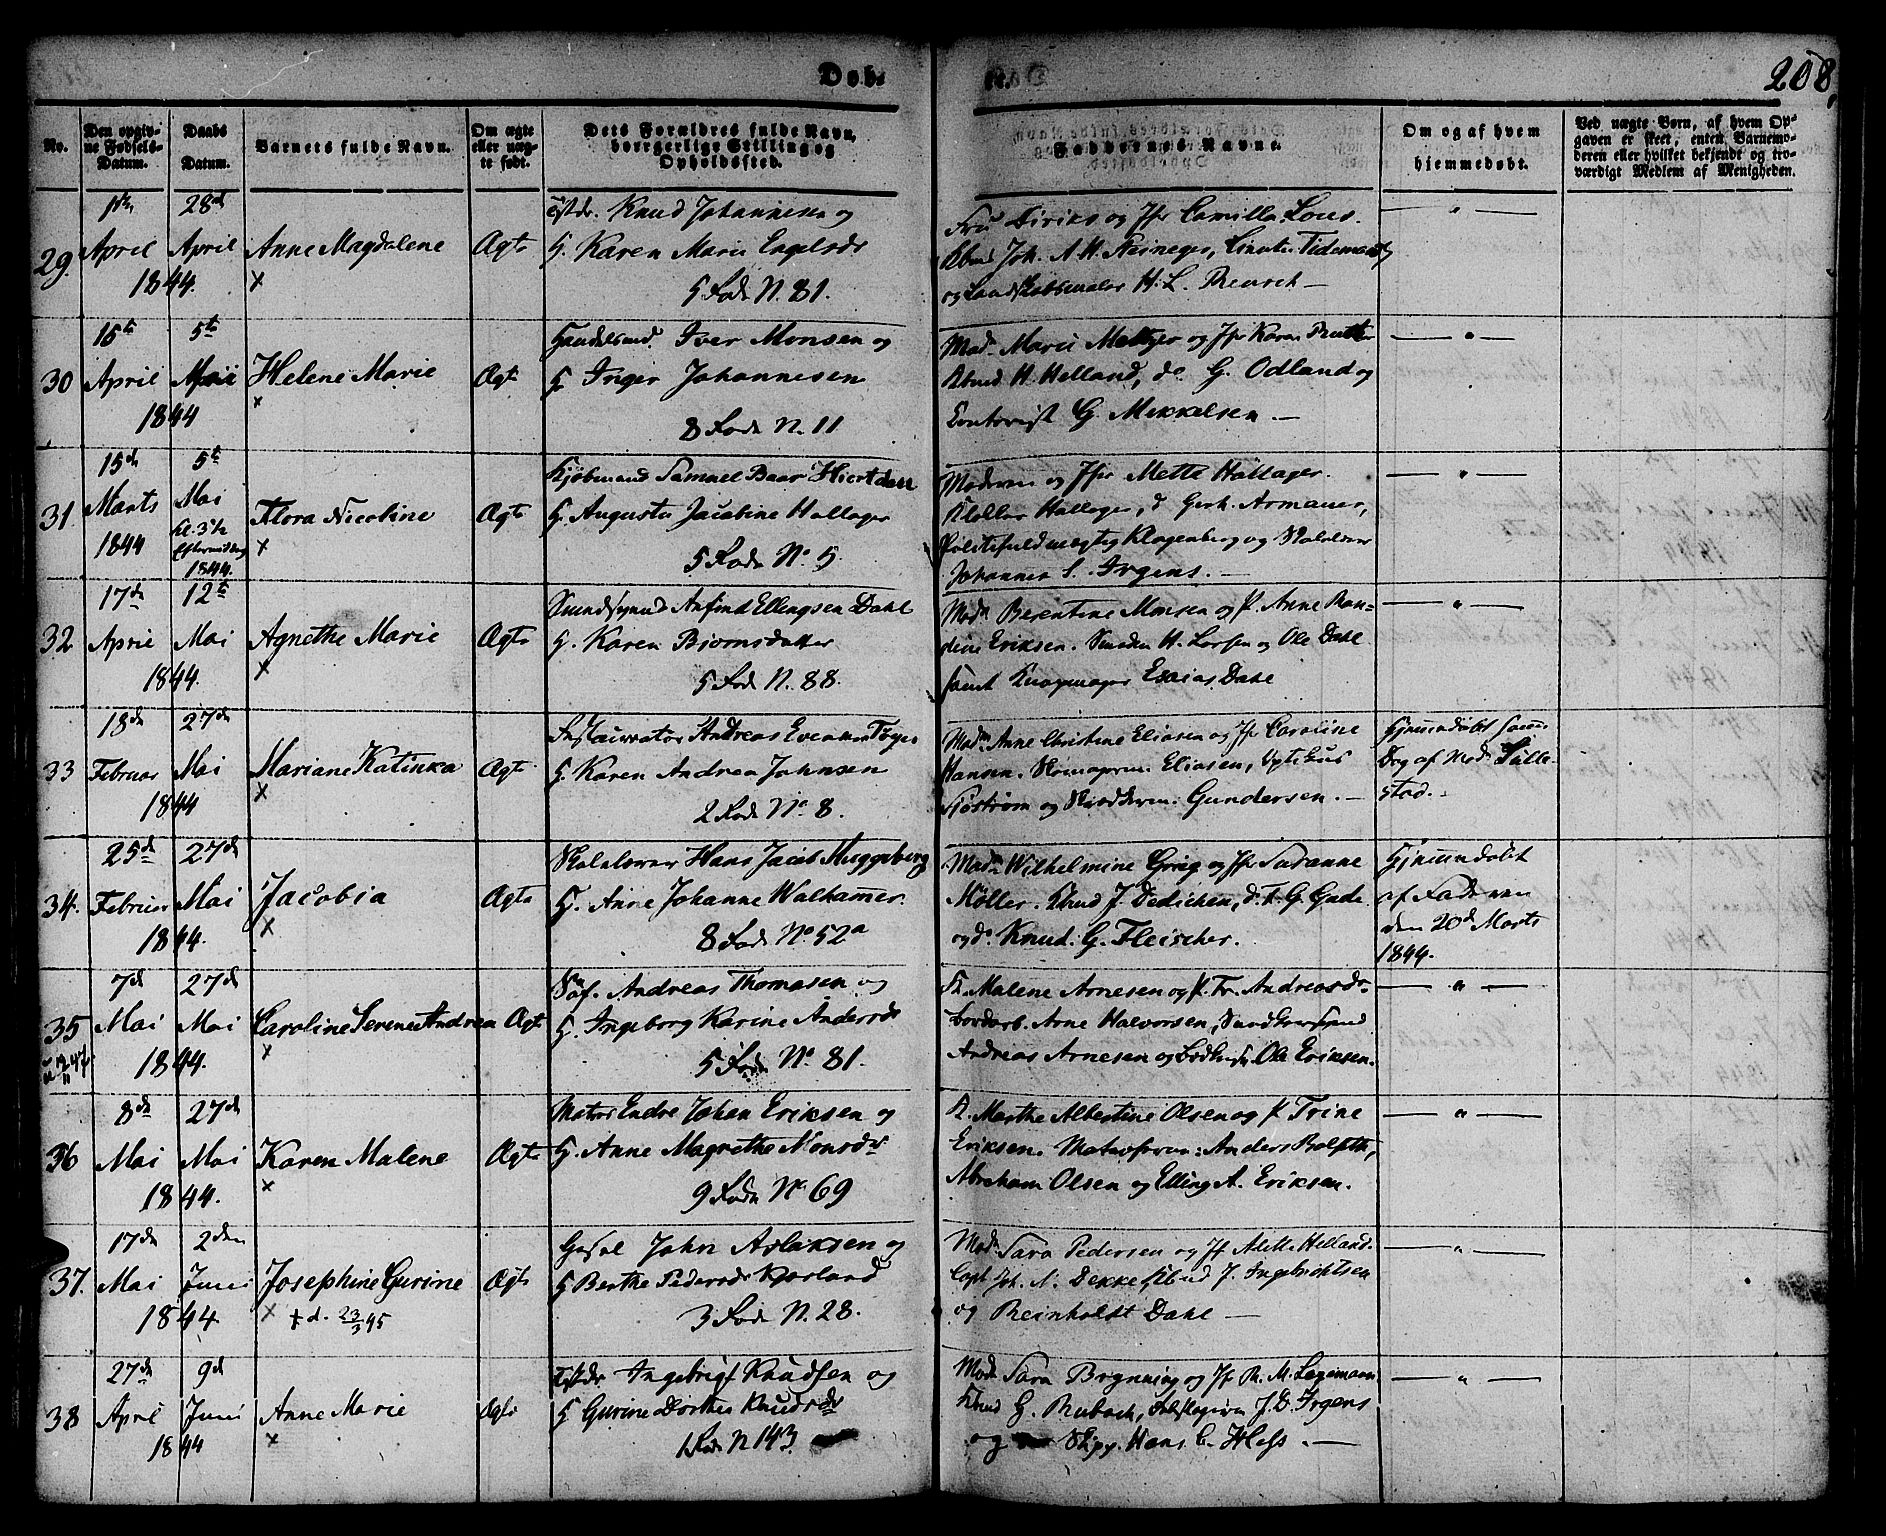 Døb.
208.
No.
Den opgivne Fødsels-Datum.
Daabs Datum.
Barnets fulde Navn.
Om ægte eller uægte født.
Dets Forældres fulde Navn, borgerlige Stilling og Opholdssted.
Faddernes Navne.
Om og af hvem hjemmedøbt.
Ved uægte Børn, af hvem Opgaven er skeet, enten Barnemoderen eller hvilket bekjendt og troværdigt Medlem af Menigheden.
29 April 28d April 1844. Anne Magdalene × Ægte
Knud Johannesen og
G. Karen Marie Engelsdr
5 Rode N. 81.
Fru Diriks og Jfr Camilla Lous.
Kbmd Joh. A. H. Reineger, Tidemand
og Landskabsmaler H. L. Reusch —
— " —
30 15de April 5te Mai 1844 Helene Marie × Ægte
Handelsmd. Iver Monsen og
G. Inger Johannesen
8 Rode N. 11
Mad. Marie Meltzer og Jfr Karen
Kbmd H. Helland, do G. Odland og
Contorist G. Mekkelsen —
— " —
31 15de Marts 1844 5te Mai kl. 3½ Eftermiddag 1844. Flora Nicoline × Ægte
Kjøbmand Samuel Baar Hiortdahl
G. Augusta Jacobine Hallager
5 Rode No. 5.
Moderen og Jfr Mette Hallager.
Hallager, d. Gerh. Armauer,
Politifuldmægtig Klagenberg og Skolelærer
Johannes S. Irgens. —
— " —
32 17de April 12te Mai 1844. Agnethe Marie × Ægte
Smedsvend Anfind Ellingsen Dahl
G. Karen Bjørnsdatter
5 Rode N. 88.
Madm Berentine Monsen og P. Anne Ran-
dine Eriksen. Smeden H. Larsen og Ole Dahl
samt Knapmager Esaias Dahl
— " —
33 18de Februar 27de Mai 1844 Mariane Katinka × Ægte
Instaurator Andreas Evensen
G. Karen Andrea Johnsen
2 Rode No. 8.
Madm Anne Christine Eliasen og Jfr Caroline
Hansen. Skomagerm: Eliasen,
Sjøstrøm og Gundersen. —
Hjemmedøbt samme
Dag af Mad. Tulle-
stad. —
34. 25de Februar 27de Mai 1844. Jacobia × Ægte
Skolelærer Hans Jacob Muggeborg
G. Anne Johanne Walhammer.
8 Rode No. 52a
Madm Wilhelmine Grieg og Jfr Susanne
Møller. Kbmd J. Dedichen, d. F. G. Gade
og do. Knud. G. Fleischer.
Hjemmedøbt
af Faderen
den 20de Marts
1844.
35 7de Mai 27de Mai 1844. Caroline Serene Andrea × Ægte
Andreas Thomasen og
G. Ingeborg Karine Andersdr
5 Rode No. 81.
K. Malene Arnesen og P. Tr. Andreasdr.
Bordarb. Arne Halvorsen,
Andreas Arnesen og Ole Eriksen.
— " —
36 8de Mai 27de Mai 1844. Karen Malene × Ægte
Matros Endre Johan Eriksen og
G. Anne Magrethe Monsdr
9 Rode No. 69
K. Marthe Albertine Olsen og P. Trine
Eriksen. Anders
Abraham Olsen og Elling A. Eriksen.
— " —
37. 17de Mai 2den Juni 1844. Josephine Gurine × † d. 23/3 45 Ægte
John Aslaksen og
G Berthe Pedersdr
3 Rode N. 28.
Madm Sara Pedersen og Jf Alette Helland.
Capt. Joh. N. Dekke, Kbmd J. Ingebrichtsen
og Reinholdt Dahl —
— " —
38 27de April 9d Juni 1844 Anne Marie × Ægte
Ingebrigt Knudsen og
G Gurine Dorthea Knudsdr
1 Rode N 143
Mad. Sara Brynning og Jf R. M. Lagemann
Kbmd G. Rubach, J. D. Irgens
og Skipp. Hans C. Hess. —
— " —